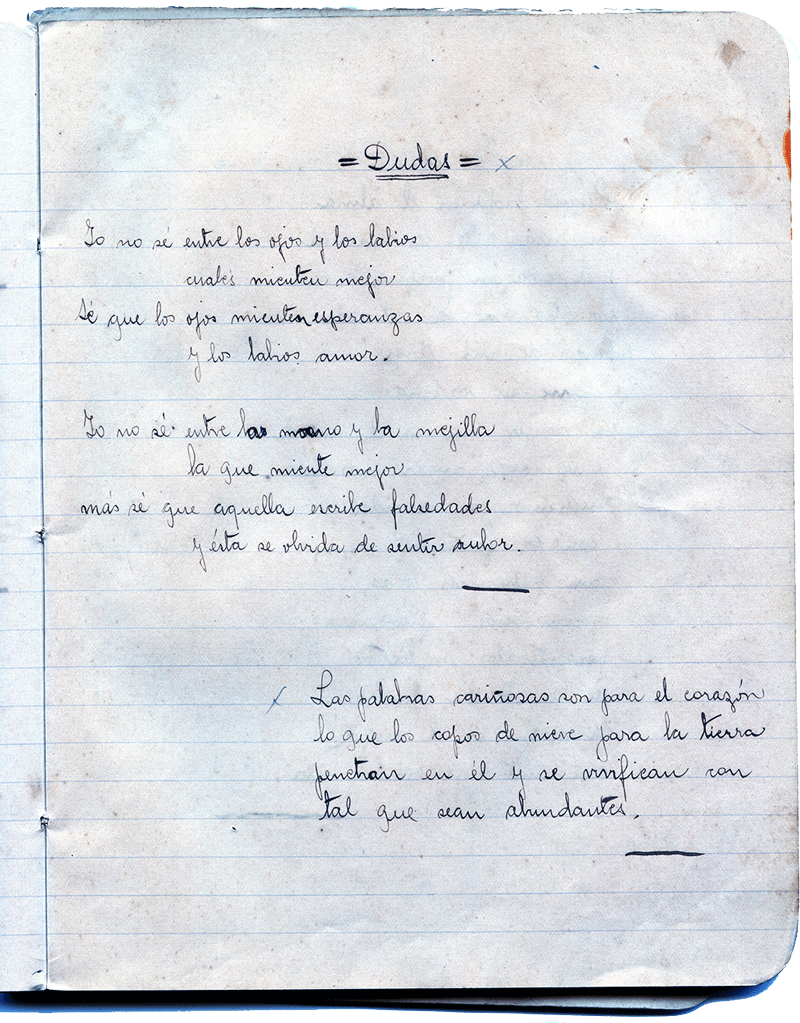 = Dudas = x
Yo no sé entre los ojos y los labios
cuales mienten mejor
Sé que los ojos mienten esperanzas
y los labios amor.
Yo no sé entre la mano y la mejilla
la que miente mejor
más sé que aquella escribe falsedades
y ésta se olvida de sentir rubor.
x Las palabras cariñosas son para el corazón
lo que los copos de nieve para la tierra
penetran en él y se vivifican con
tal que sean abundantes.